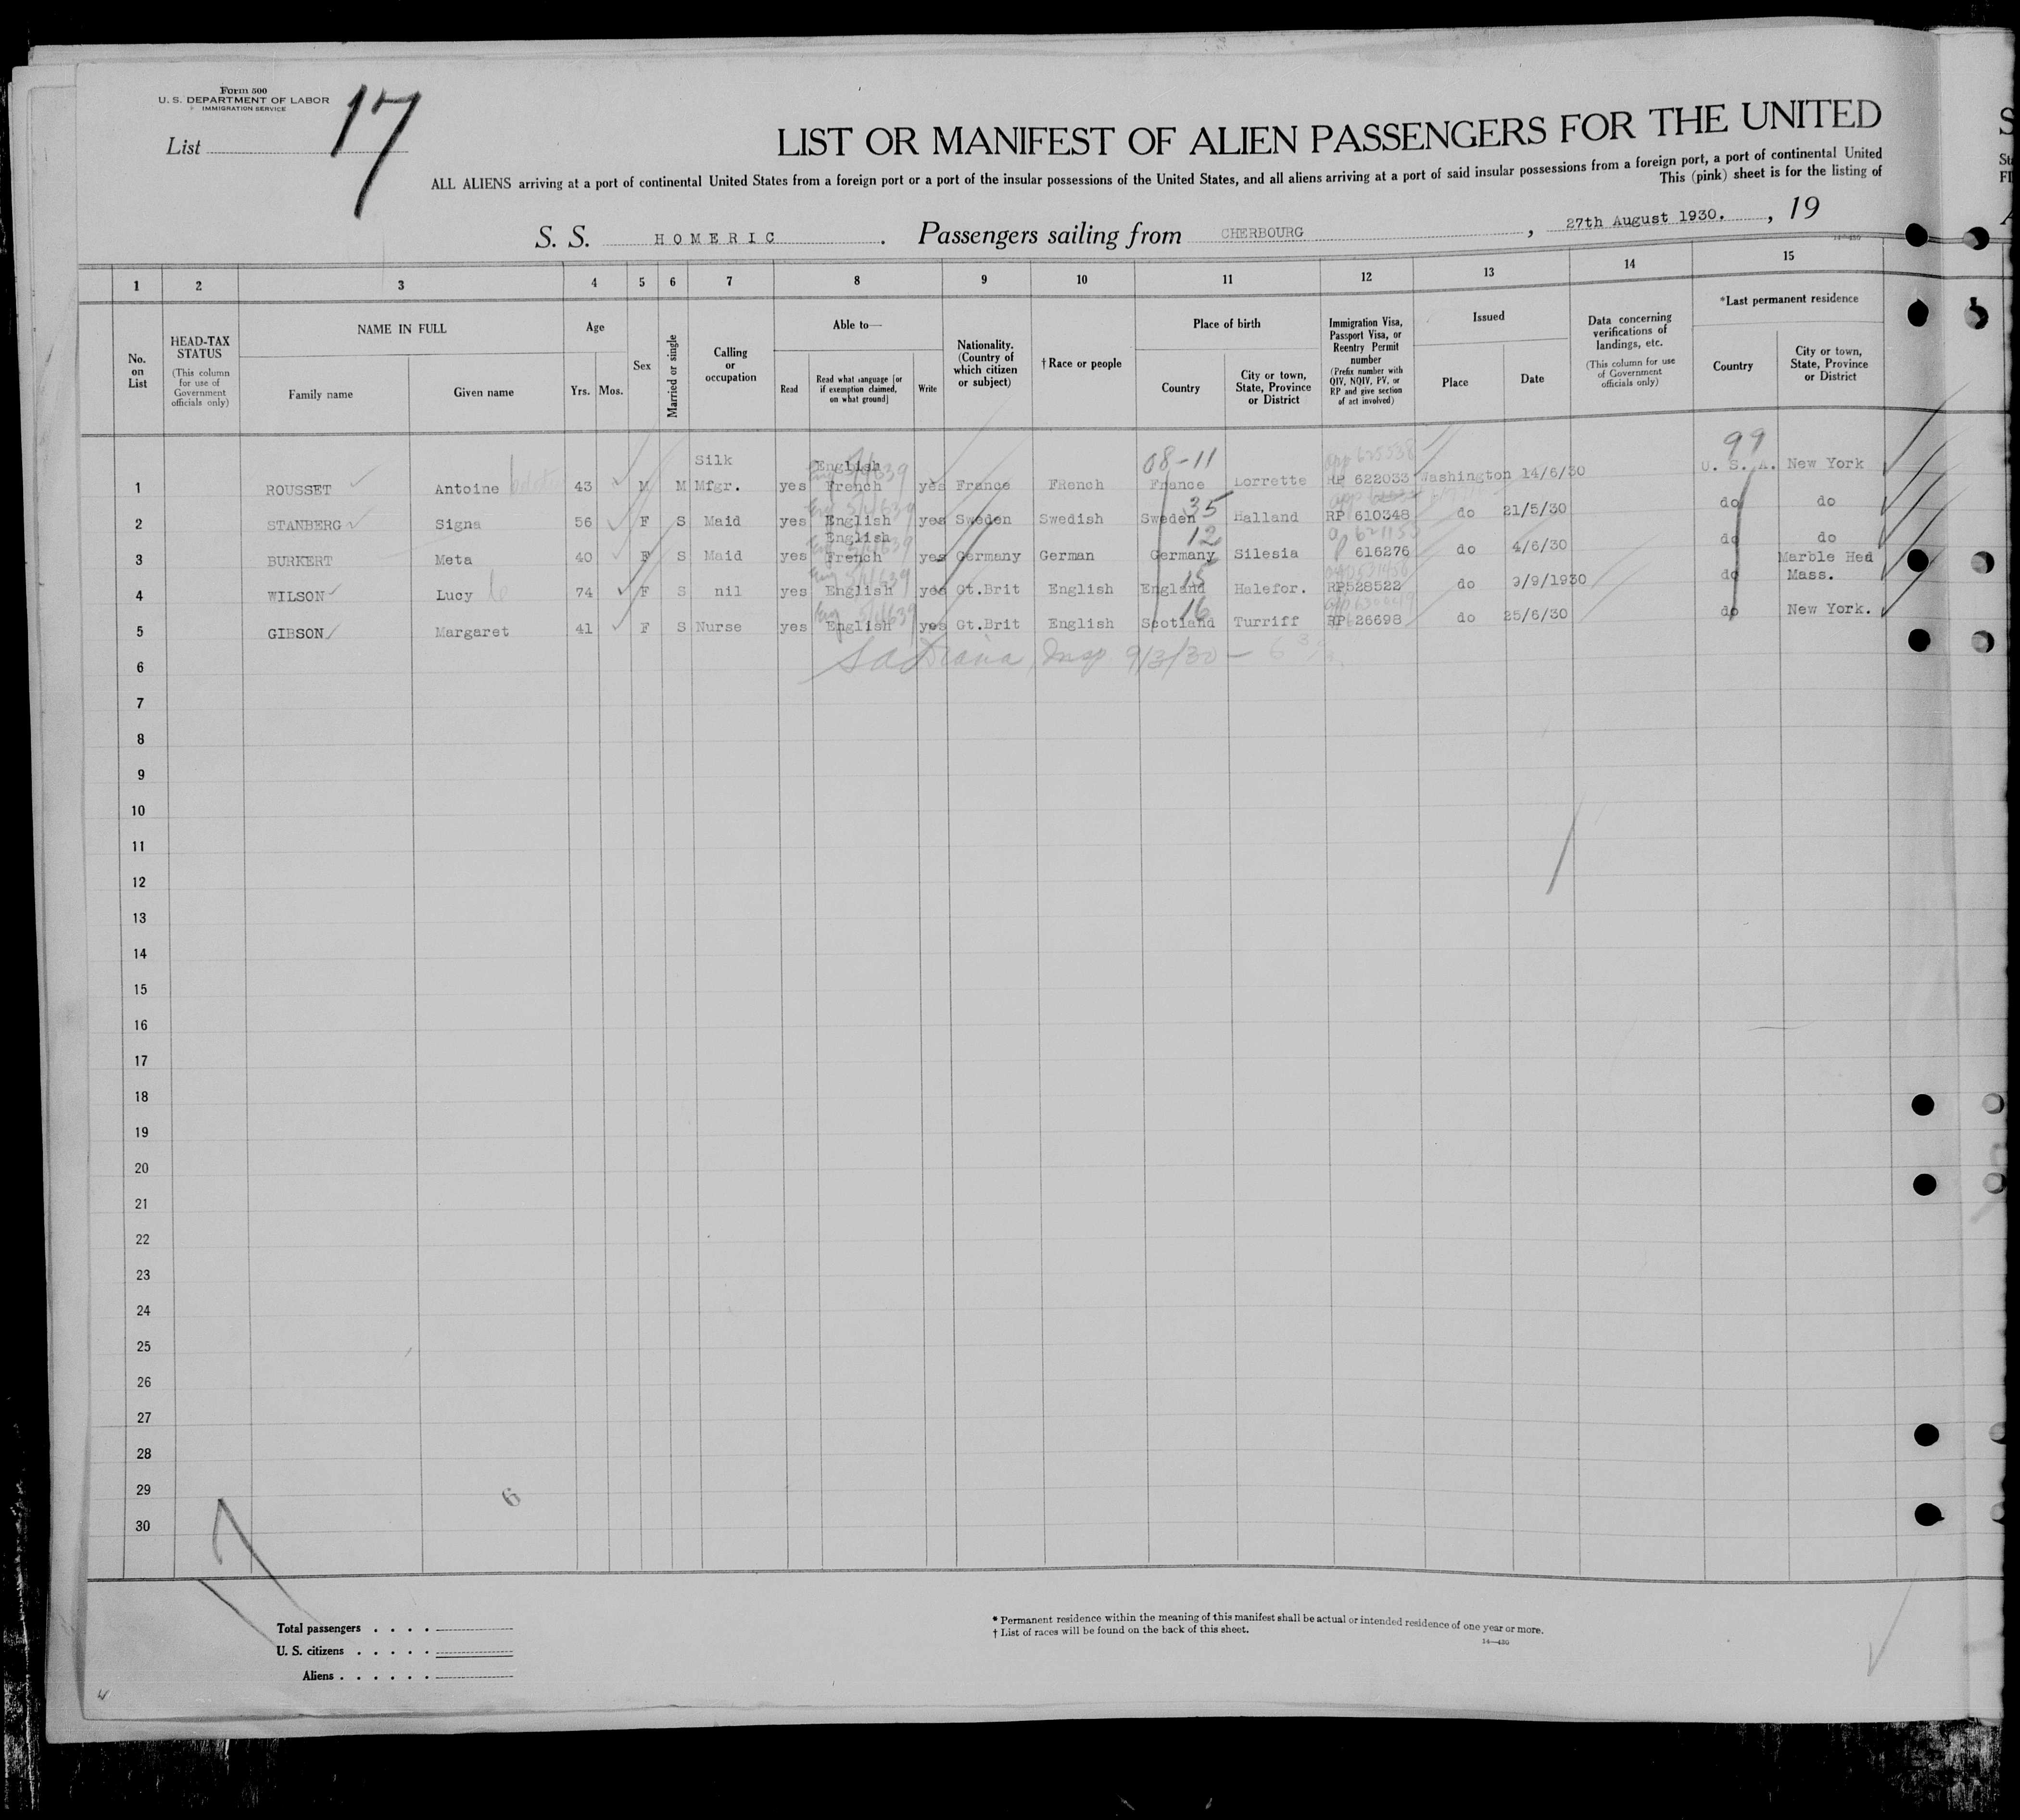 Form 500
U. S. DEPARTMENT OF LABOR
IMMIGRATION SERVICE
List 17
LIST OR MANIFEST OF ALIEN PASSENGERS FOR THE UNITED
ALL ALIENS arriving at a port of continental United States from a foreign port or a port of the insular possessions of the United States, and all aliens arriving at a port of said insular possessions from a foreign port, a port of continental United
This (pink) sheet is for the listing of
S. S. HOMERIC. Passengers sailing from CHERBOURG, 27th August 1930., 19
1 2 3 4 5 6 7 8 9 10 11 12 13 14 15
No. on List
HEAD-TAX STATUS
(This column for use of Government officials only)
NAME IN FULL
Family name
Given name
Age
Yrs. Mos.
Sex
Married or single
Calling or occupation
Able to—
Read
Read what language [or if exemption claimed, on what ground]
Write
Nationality. (Country of which citizen or subject)
† Race or people
Place of birth
Country
City or town, State, Province or District
Immigration Visa, Passport Visa, or Reentry Permit number
(Prefix number with QIV, NQIV, PV, or RP and give section of act involved)
Issued
Place
Date
Data concerning verifications of landings, etc.
(This column for use of Government officials only)
*Last permanent residence
Country
City or town, State, Province or District
08-11 99
Silk English U. S. A. New York
1 ROUSSET Antoine 43 M M Mfgr. yes French yes France FRench France Lorrette RP 622033 Washington 14/6/30
35
2 STANBERG Signa 56 F S Maid yes English yes Sweden Swedish Sweden Halland RP 610348 do 21/5/30 do do
English 12
3 BURKERT Meta 40 F S Maid yes French yes Germany German Germany Silesia 616276 do 4/6/30 do do
15 Marble Hed
4 WILSON Lucy 74 F S nil yes English yes Gt.Brit English England Halefor. RP528522 do 9/9/1930 do Mass.
16
5 GIBSON Margaret 41 F S Nurse yes English yes Gt.Brit English Scotland Turriff RP 26698 do 25/6/30 do New York.
6 Insp 9/3/30
7
8
9
10
11
12
13
14
15
16
17
18
19
20
21
22
23
24
25
26
27
28
29
30
6
17
Total passengers
U. S. citizens
Aliens
* Permanent residence within the meaning of this manifest shall be actual or intended residence of one year or more.
† List of races will be found on the back of this sheet.
14—430